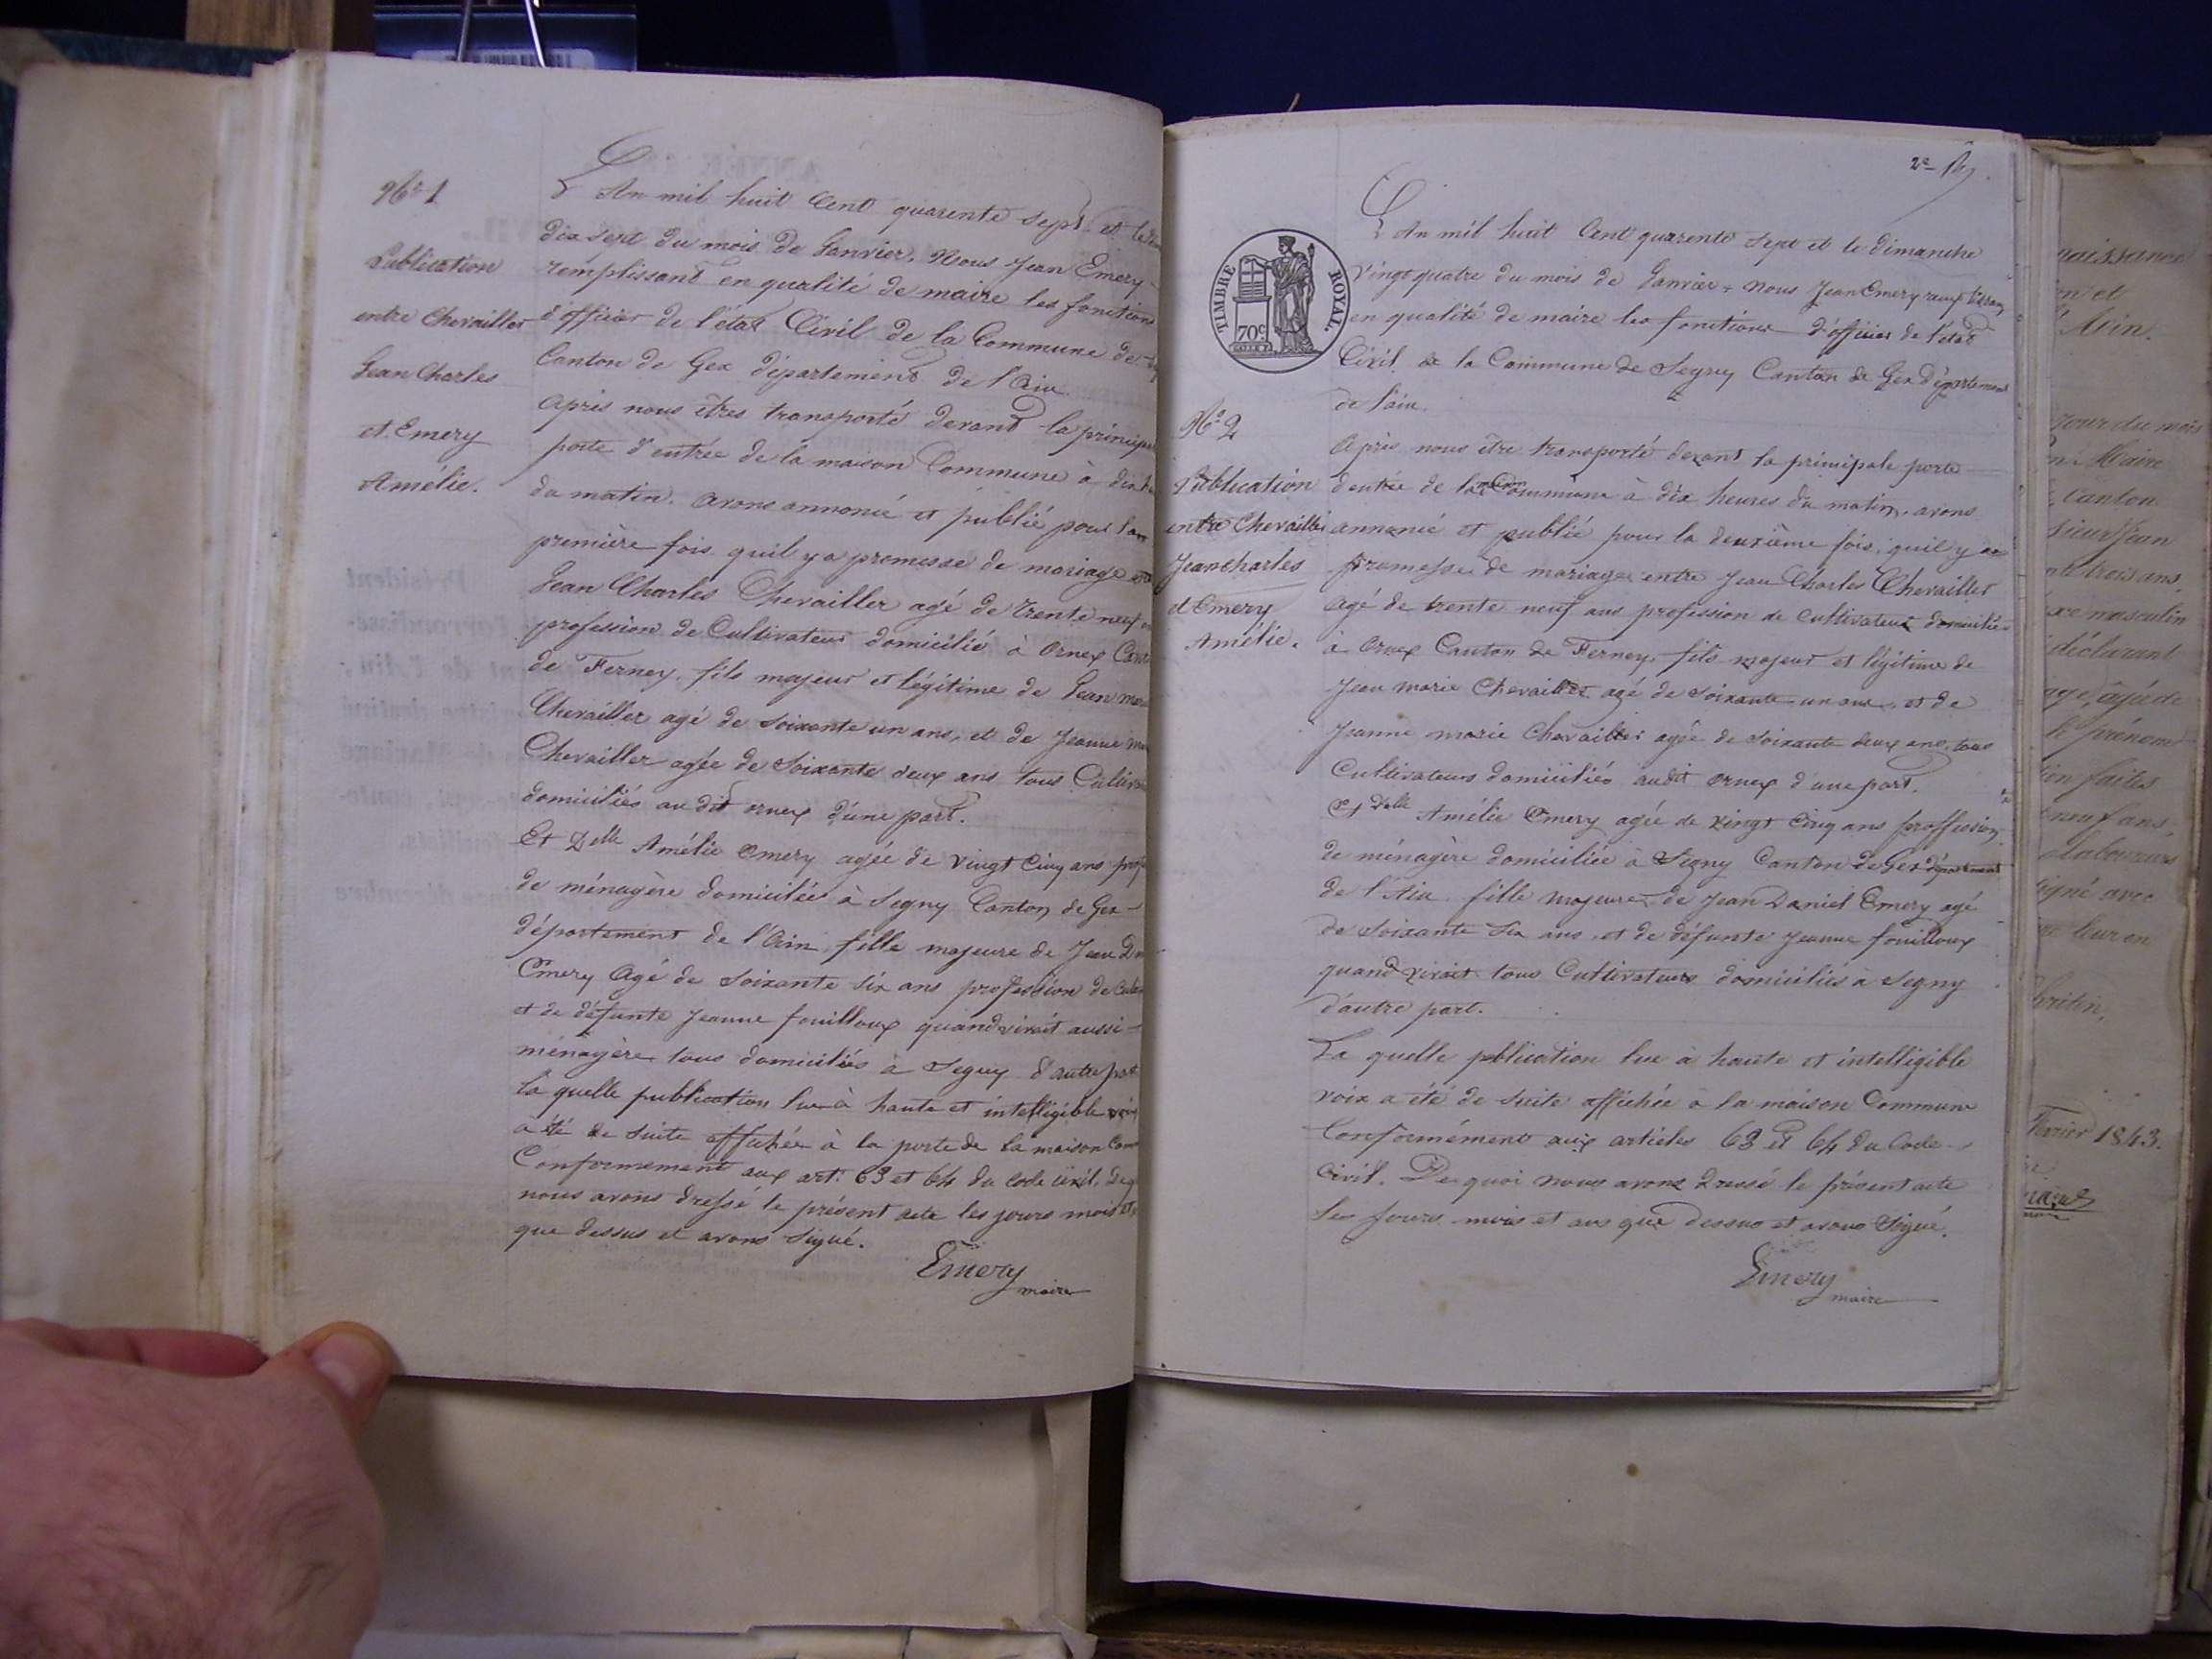 Nº 1
Publication
entre Chevailler
Jean Charles
et Emery
Amélie.
L'An mil huit Cent quarente sept et le
dix sept du mois de Janvier, Nous Jean Emery
remplissant en qualité de maire les fonctions
d'officier de l'état Civil de la Commune de
Canton de Gex département de l'Ain
après nous êtres transporté devant la
porte d'entrée de la maison Commune à dix
du matin. avons annoncé et publié pour la
première fois quil y a promesse de mariage
Jean Charles Chevailler agé de trente neuf
profession de Cultivateur domicilié à Ornex
de Ferney, fils majeur et légitime de Jean
Chevailler agé de soixante un ans, et de Jeanne
Chevailler agée de Soixante deux ans tous
domiciliés au dit ornex d'une part.
Et Delle Amélie emery agée de vingt Cinq ans
de ménagère domiciliée à Segny Canton de Gex
département de l'Ain, fille majeure de Jean
Emery Agé de soixante six ans profession de
et de défunte Jeanne fouilloux quand vivait aussi
ménagère tous domiciliés à Segny d'autre part
la quelle publication lue à haute et intelligible voix
a été de suite affichée à la porte de la maison
Conformement aux art. 63 et 64 du code civil. De
nous avons dressé le présent acte les jours mois et
que dessus et avons signé.
Emery
maire
2e
TIMBRE ROYAL.
70c
L'An mil huit Cent quarente sept et le dimanche
vingt quatre du mois de Janvier, nous Jean Emery
en qualité de maire les fonctions d'officier de l'état
Civil de la Commune de Segny Canton de Gex Département
de l'ain.
Nº 2
Publication
entre Chevailler
Jean charles
et Emery
Amélie.
Après nous être transporté devant la principale porte
dentrée de la maison Commune à dix heures du matin, avons
annoncé et publié pour la deuxième fois, quil y a
promesse de mariage entre Jean Charles Chevailler
agé de trente neuf ans profession de cultivateur domicilié
à Ornex Canton de Ferney, fils majeur et légitime de
Jean marie Chevailler agé de soixante un ans, et de
Jeanne marie Chevailler agée de soixante deux ans, tous
Cultivateurs domiciliés audit ornex d'une part.
Et Delle Amélie Emery agée de vingt Cinq ans proffession
de ménagère domiciliée à Segny Canton de Gex département
de l'Ain fille majeure de Jean Daniel Emery agé
de soixante six ans, et de défunte Jeanne fouilloux
quand vivait tous Cultivateurs domiciliés à Segny
d'autre part.
La quelle pblication lue à haute et intelligible
voix a été de suite affichée à la maison Commune
Conformément aux articles 63 et 64 du Code
Civil. De quoi nous avons dressé le présent acte
les jours mois et ans que dessus et avons signé.
Emery
maire
naissance
et
Ain.
jour du mois
Maire
Canton
Sieur Jean
trois ans,
masculin
déclarant
agé de
prénoms
faites
neuf ans,
laboureurs
signé avec
leur en
Février 1843.